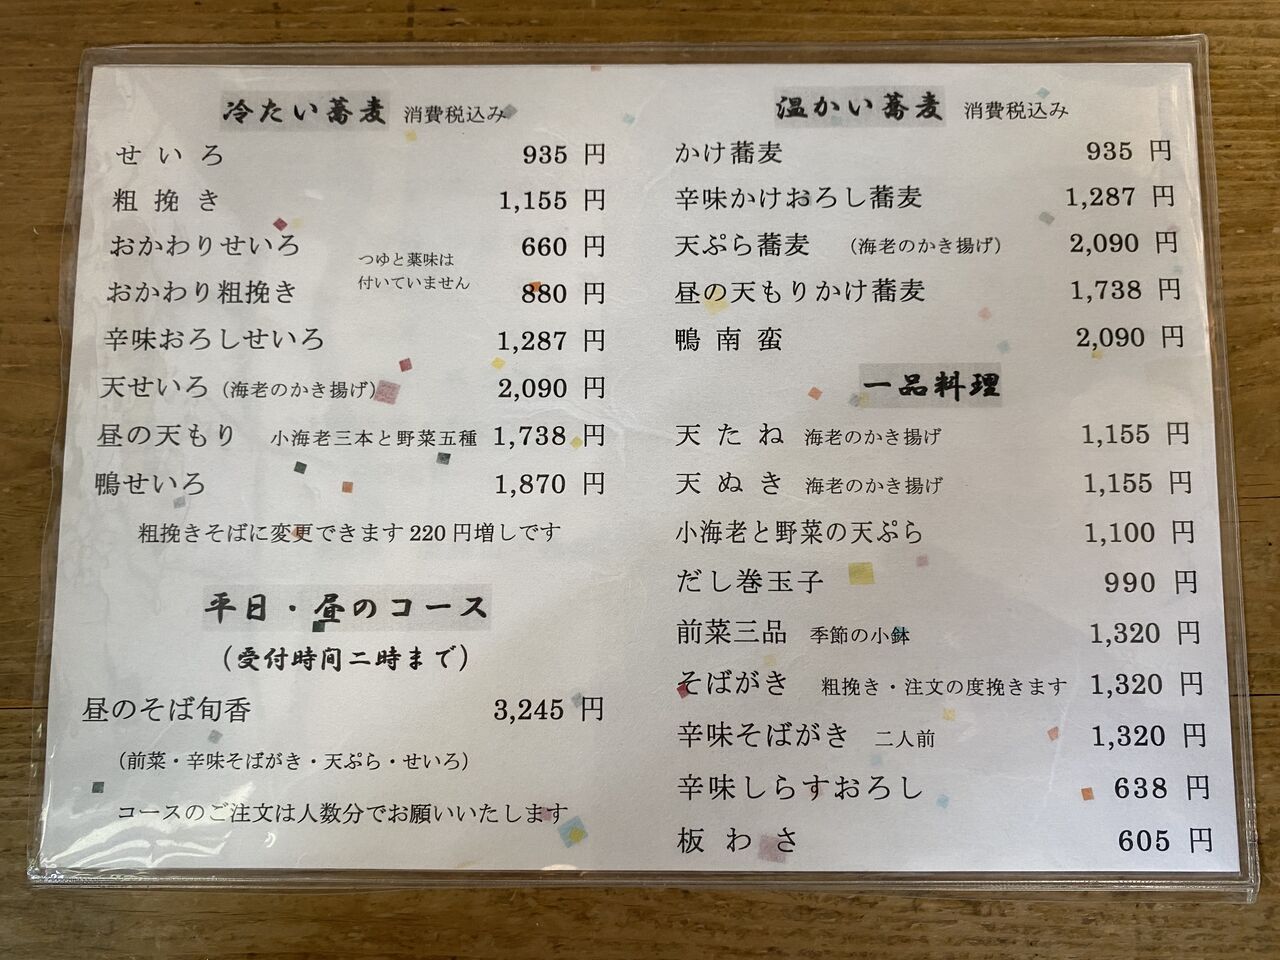 冷たい蕎麦 消費税込み
せいろ 935 円
粗挽き 1,155 円
おかわりせいろ 660 円
つゆと薬味は
付いていません
おかわり粗挽き 880 円
辛味おろしせいろ 1,287 円
天せいろ（海老のかき揚げ） 2,090 円
昼の天もり 小海老三本と野菜五種 1,738 円
鴨せいろ 1,870 円
粗挽きそばに変更できます 220 円増しです
平日・昼のコース
（受付時間二時まで）
昼のそば旬香 3,245 円
（前菜・辛味そばがき・天ぷら・せいろ）
コースのご注文は人数分でお願いいたします
温かい蕎麦 消費税込み
かけ蕎麦 935 円
辛味かけおろし蕎麦 1,287 円
天ぷら蕎麦 （海老のかき揚げ） 2,090 円
昼の天もりかけ蕎麦 1,738 円
鴨南蛮 2,090 円
一品料理
天たね 海老のかき揚げ 1,155 円
天ぬき 海老のかき揚げ 1,155 円
小海老と野菜の天ぷら 1,100 円
だし巻玉子 990 円
前菜三品 季節の小鉢 1,320 円
そばがき 粗挽き・注文の度挽きます 1,320 円
辛味そばがき 二人前 1,320 円
辛味しらすおろし 638 円
板わさ 605 円